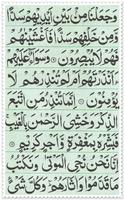 وَجَعَلْنَا مِنْ بَيْنِ اَيْدِيْهِمْ سَدًّا
وَّمِنْ خَلْفِهِمْ سَدًّا فَاَغْشَيْنٰهُمْ
فَهُمْ لَا يُبْصِرُوْنَ ۝ وَسَوَآءٌ عَلَيْهِمْ
ءَاَنْذَرْتَهُمْ اَمْ لَمْ تُنْذِرْهُمْ لَا
يُؤْمِنُوْنَ ۝ اِنَّمَا تُنْذِرُ مَنِ اتَّبَعَ
الذِّكْرَ وَخَشِيَ الرَّحْمٰنَ بِالْغَيْبِ
فَبَشِّرْهُ بِمَغْفِرَةٍ وَّاَجْرٍ كَرِيْمٍ ۝
اِنَّا نَحْنُ نُحْيِ الْمَوْتٰى وَنَكْتُبُ
مَا قَدَّمُوْا وَاٰثَارَهُمْ وَكُلَّ شَيْءٍ